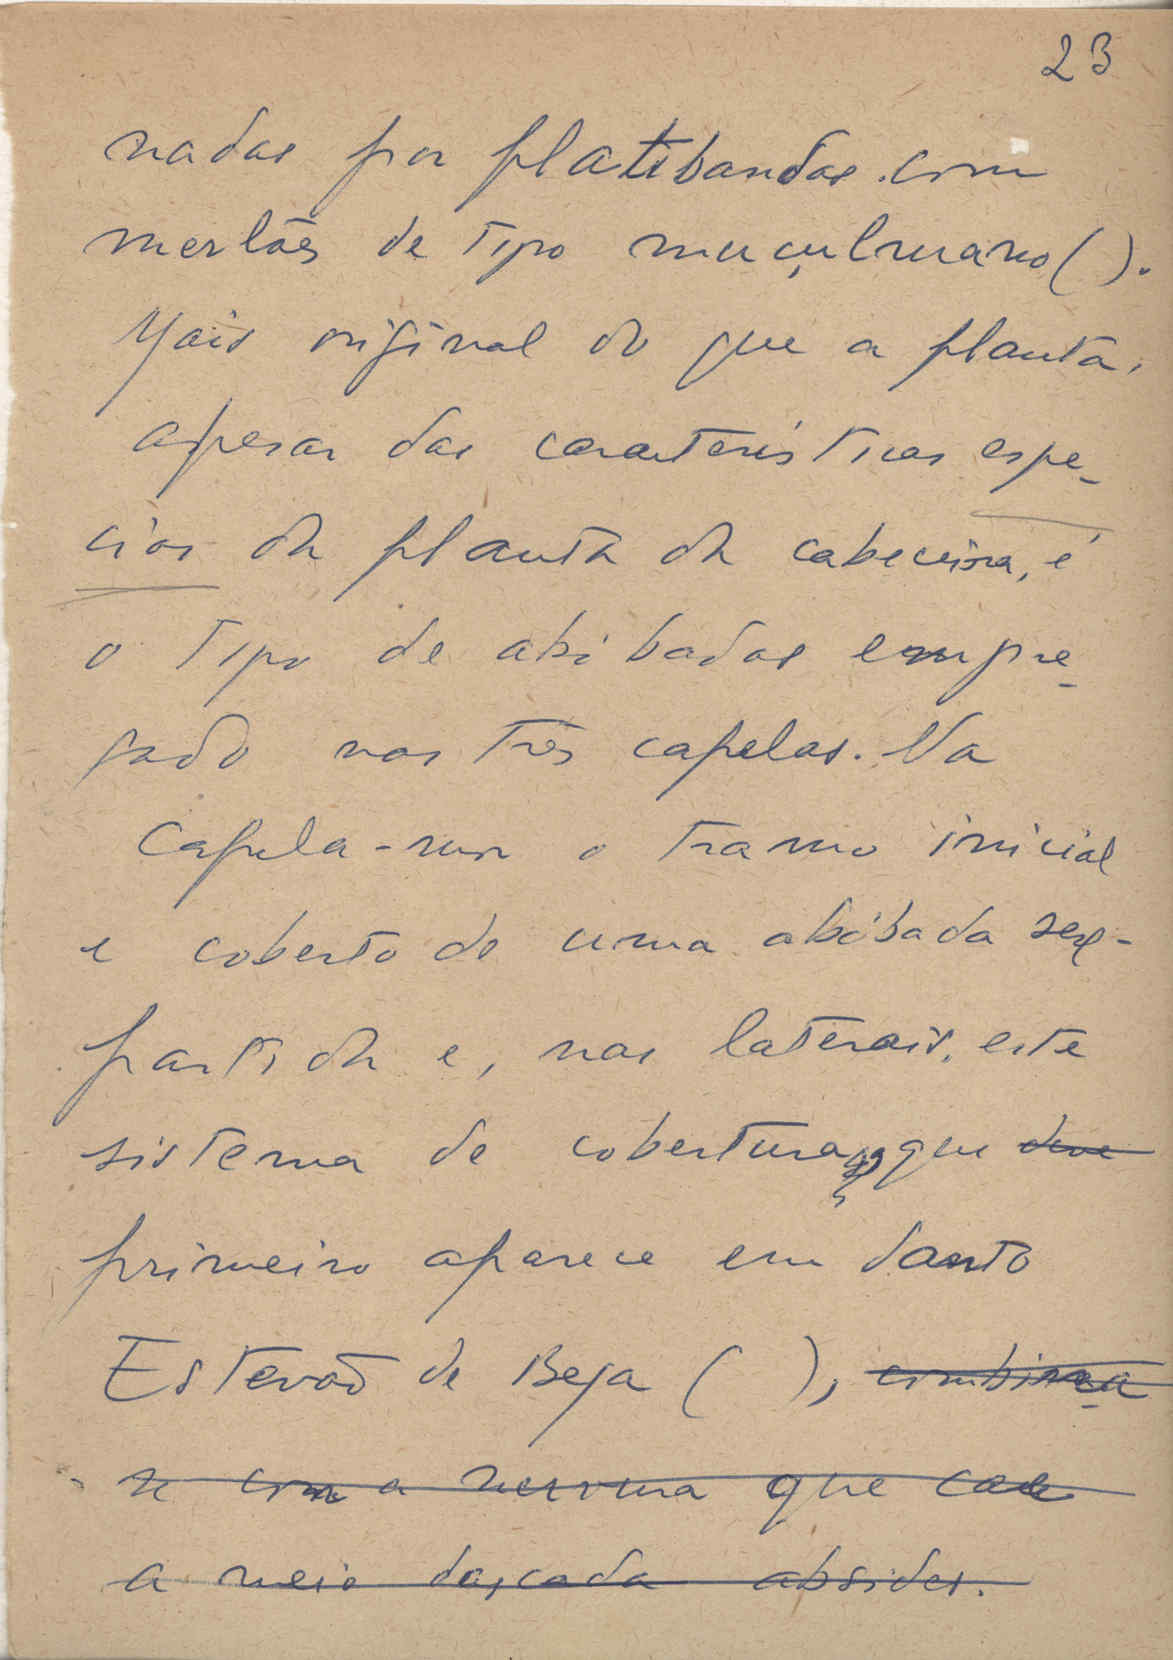 23
nadas por platibandas com
merlões de tipo muçulmano ( ).
Mais original do que a planta,
apesar das características espe-
ciais da planta da cabeceira, é
o tipo de abóbadas empre-
gado nas três capelas. Na
capela-mor o tramo inicial
é coberto de uma abóbada sex-
partida e, nas laterais, este
sistema de cobertura, que
primeiro aparece em Santo
Estevão de Beja ( ), combina
se com a nervura que cae
a meio das, cada absides.